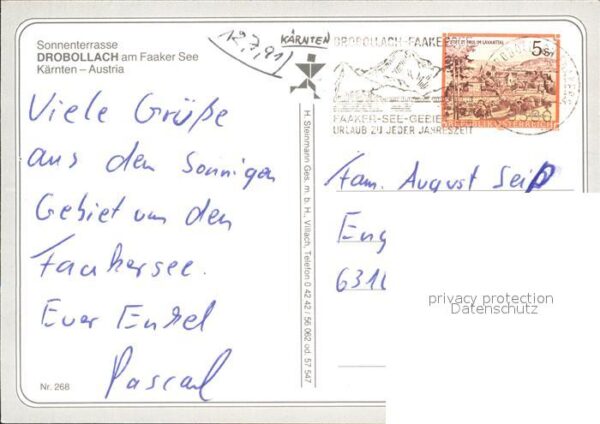 Sonnenterrasse
DROBOLLACH am Faaker See
Kärnten – Austria
12.7.91
KÄRNTEN
DROBOLLACH-FAAKERSEE
FAAKER-SEE-GEBIET
URLAUB ZU JEDER JAHRESZEIT
STIFT ST. PAUL IM LAVANTTAL
5 S
REPUBLIK ÖSTERREICH
Viele Grüße
aus den Sonnigen
Gebiet um den
Faakersee.
Euer Enkel
Pascal
H. Steinmann Ges. m. b. H., Villach, Telefon 0 42 42 / 56 062 od. 57 547
Fam. August Seip
Eng
631
privacy protection
Datenschutz
Nr. 268